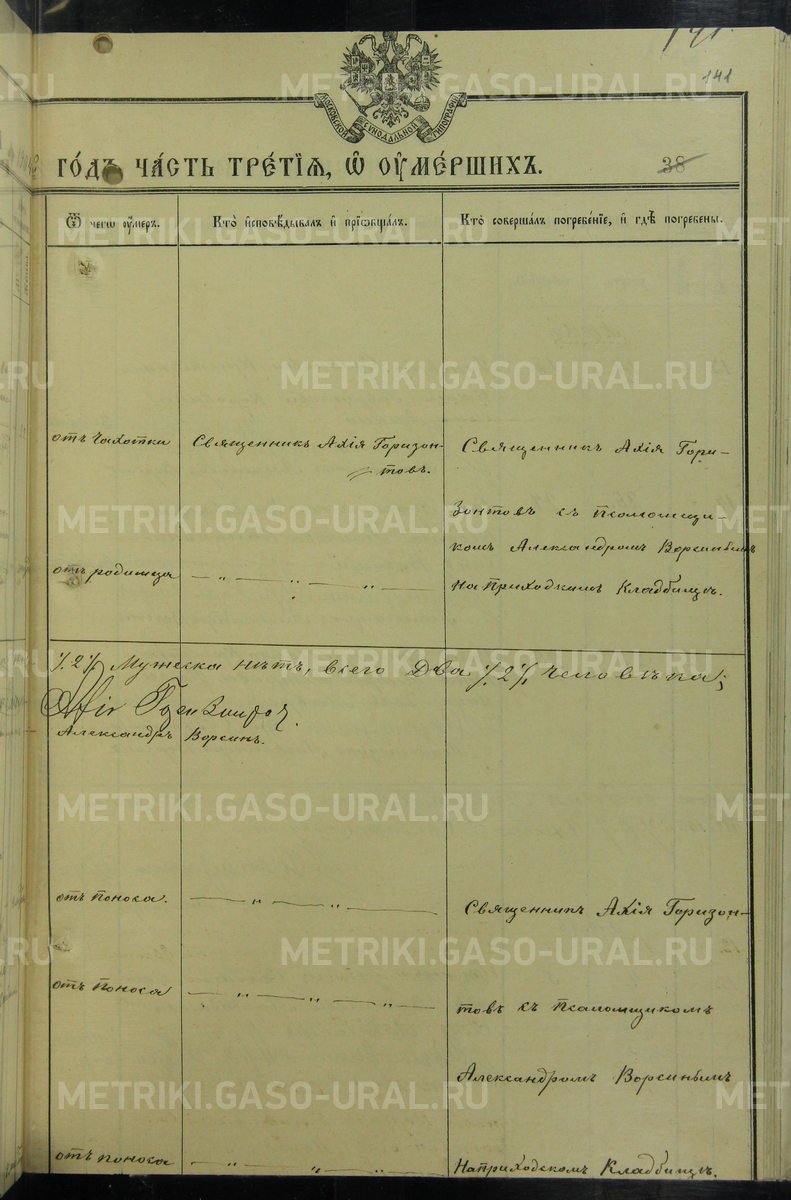 141
МОСКОВСКОЙ СѴНОДАЛЬНОЙ ТИПОГРАФІИ
го́дъ ча́сть тре́тїѧ, ѽ оу҆ме́ршихъ.
38
Ѿ чегѡ̀ оу҆́меръ.
Кто̀ и҆сповѣ́дывалъ и҆ прїѡбща́лъ.
Кто̀ соверша́лъ погребе́нїе, и҆ гдѣ̀ погребены̀.
отъ Чахотки
Священникъ Ахія Горизон-
товъ.
Священникъ Ахія Гори-
зонтовъ съ Псаломщи-
комъ Александромъ Ворсинымъ
на Приходскимъ Кладбищѣ.
отъ родимца
— „ — „ — „ —
/.2/. Мужеска нѣтъ, всего Два /.2/. Человѣка;
Александръ Ворсинъ.
отъ Поноса.
— „ — „ —
Священникъ Ахія Горизон-
отъ Поноса
— „ — „ — „ —
товъ съ Псаломщикомъ
Александромъ Ворсинымъ
отъ Поноса
— „ — „ — „ —
На приходскомъ Кладбищѣ.
METRIKI.GASO-URAL.RU